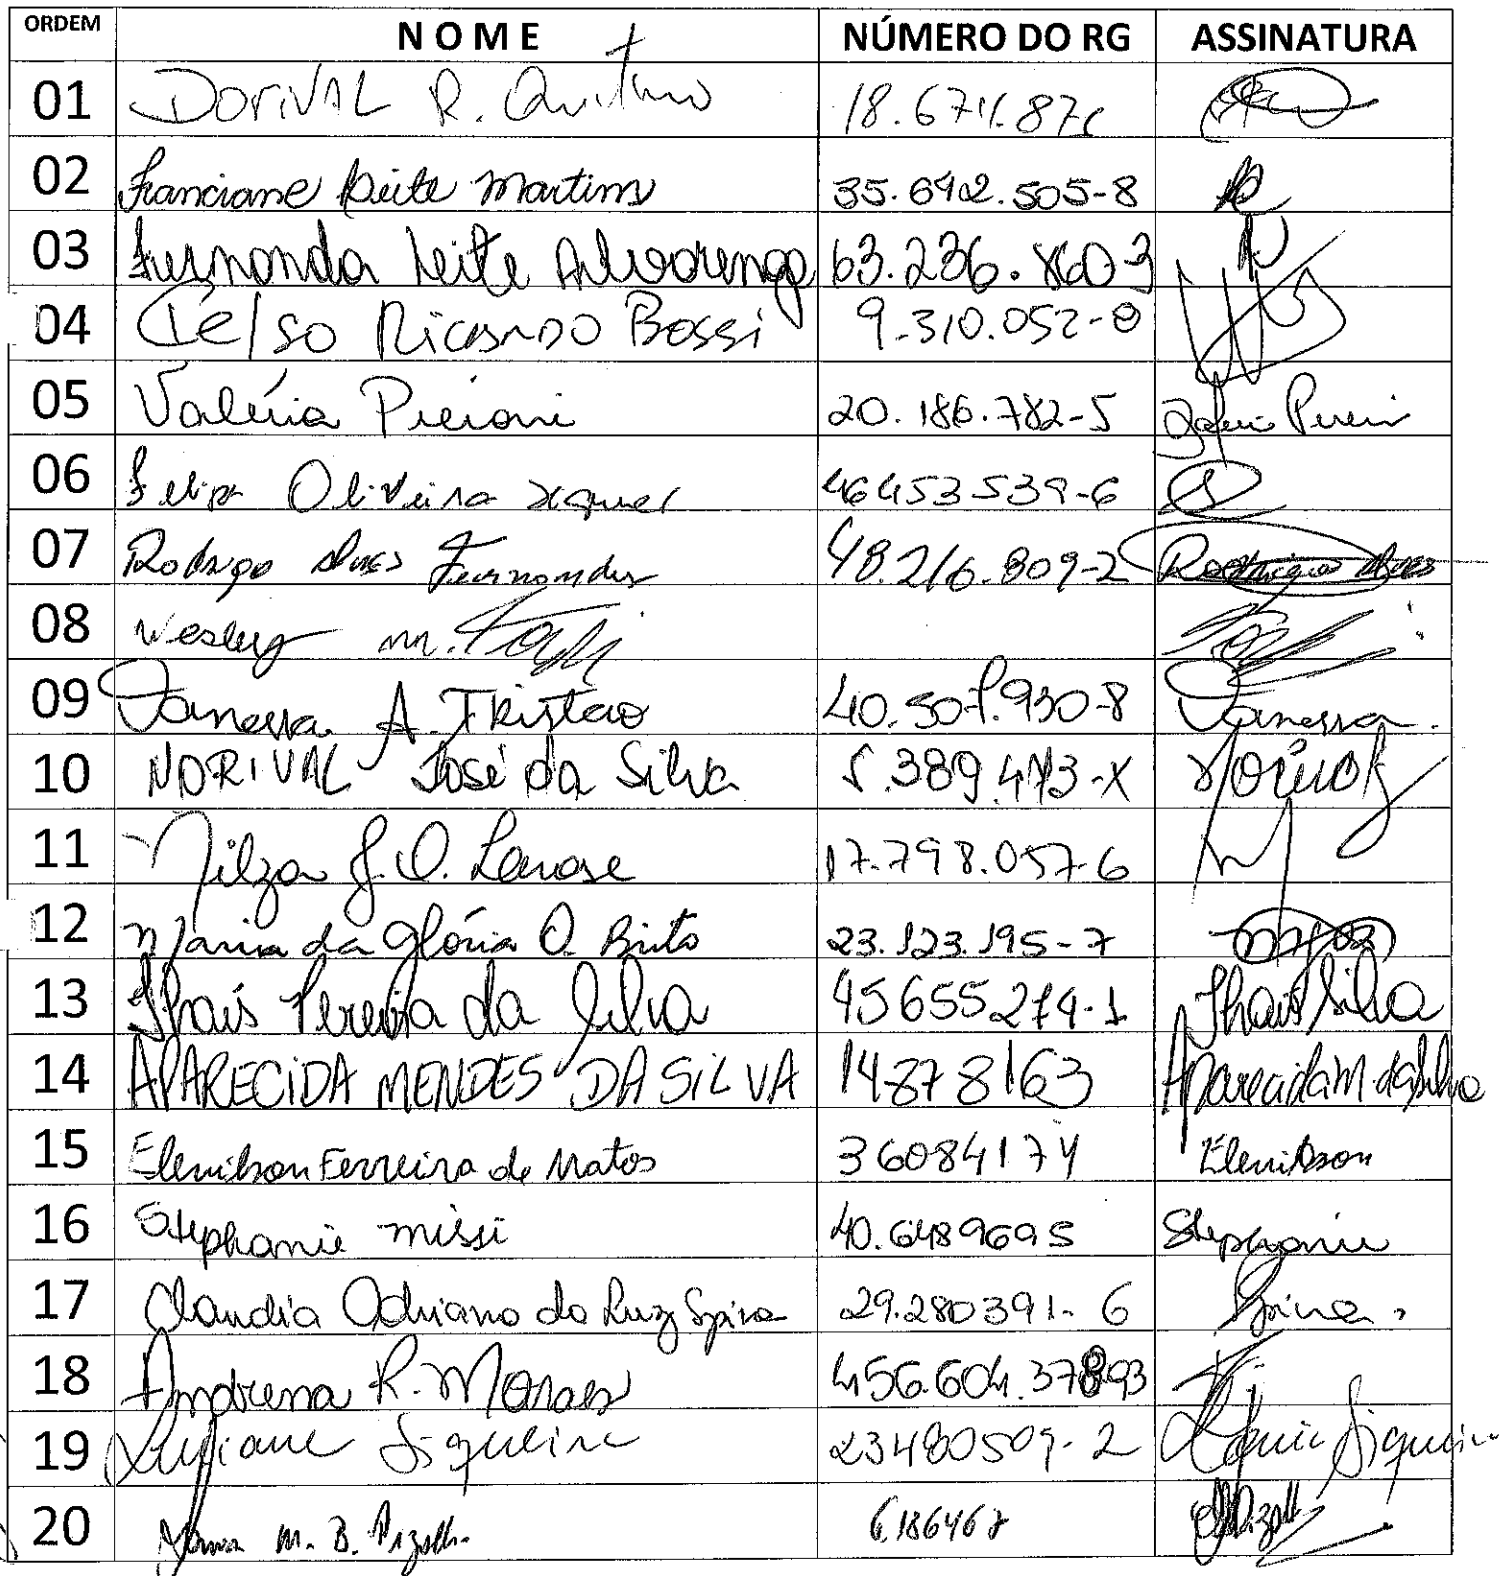 ORDEM NOME NÚMERO DO RG ASSINATURA
01 DORIVAL R. 18.671.87
02 Franciane Leite Martins 35.692.505-8
03 Fernanda Leite Alvarenga 63.236.860 3
04 Celso Ricardo Bossi 9.310.052-0
05 Valéria Pierani 20.186.782-5
06 Felipe Oliveira 46453539-6
07 Rodrigo Alves Fernandes 48.216.809-2 Rodrigo Alves
08 Wesley M.
09 Vanessa A. Tristão 40.507.930-8 Vanessa
10 NORIVAL José da Silva 5.389.473-X
11 Nilza J. O. 17.798.057-6
12 Maria da Glória O. Brito 23.123.195-7
13 Thais Pereira da Silva 45655274-1 Thais Silva
14 APARECIDA MENDES DA SILVA 14878163 Aparecida M. da Silva
15 Elenilson Ferreira de Matos 36084174 Elenilson
16 Stephanie missi 40.6489695 Stephanie
17 Claudia Adriano da Luz Spina 29.280391-6 Spina
18 Andressa R. Moraes
19 Siqueira 23480509-2 Siqueira
20 M. B. 6.186467